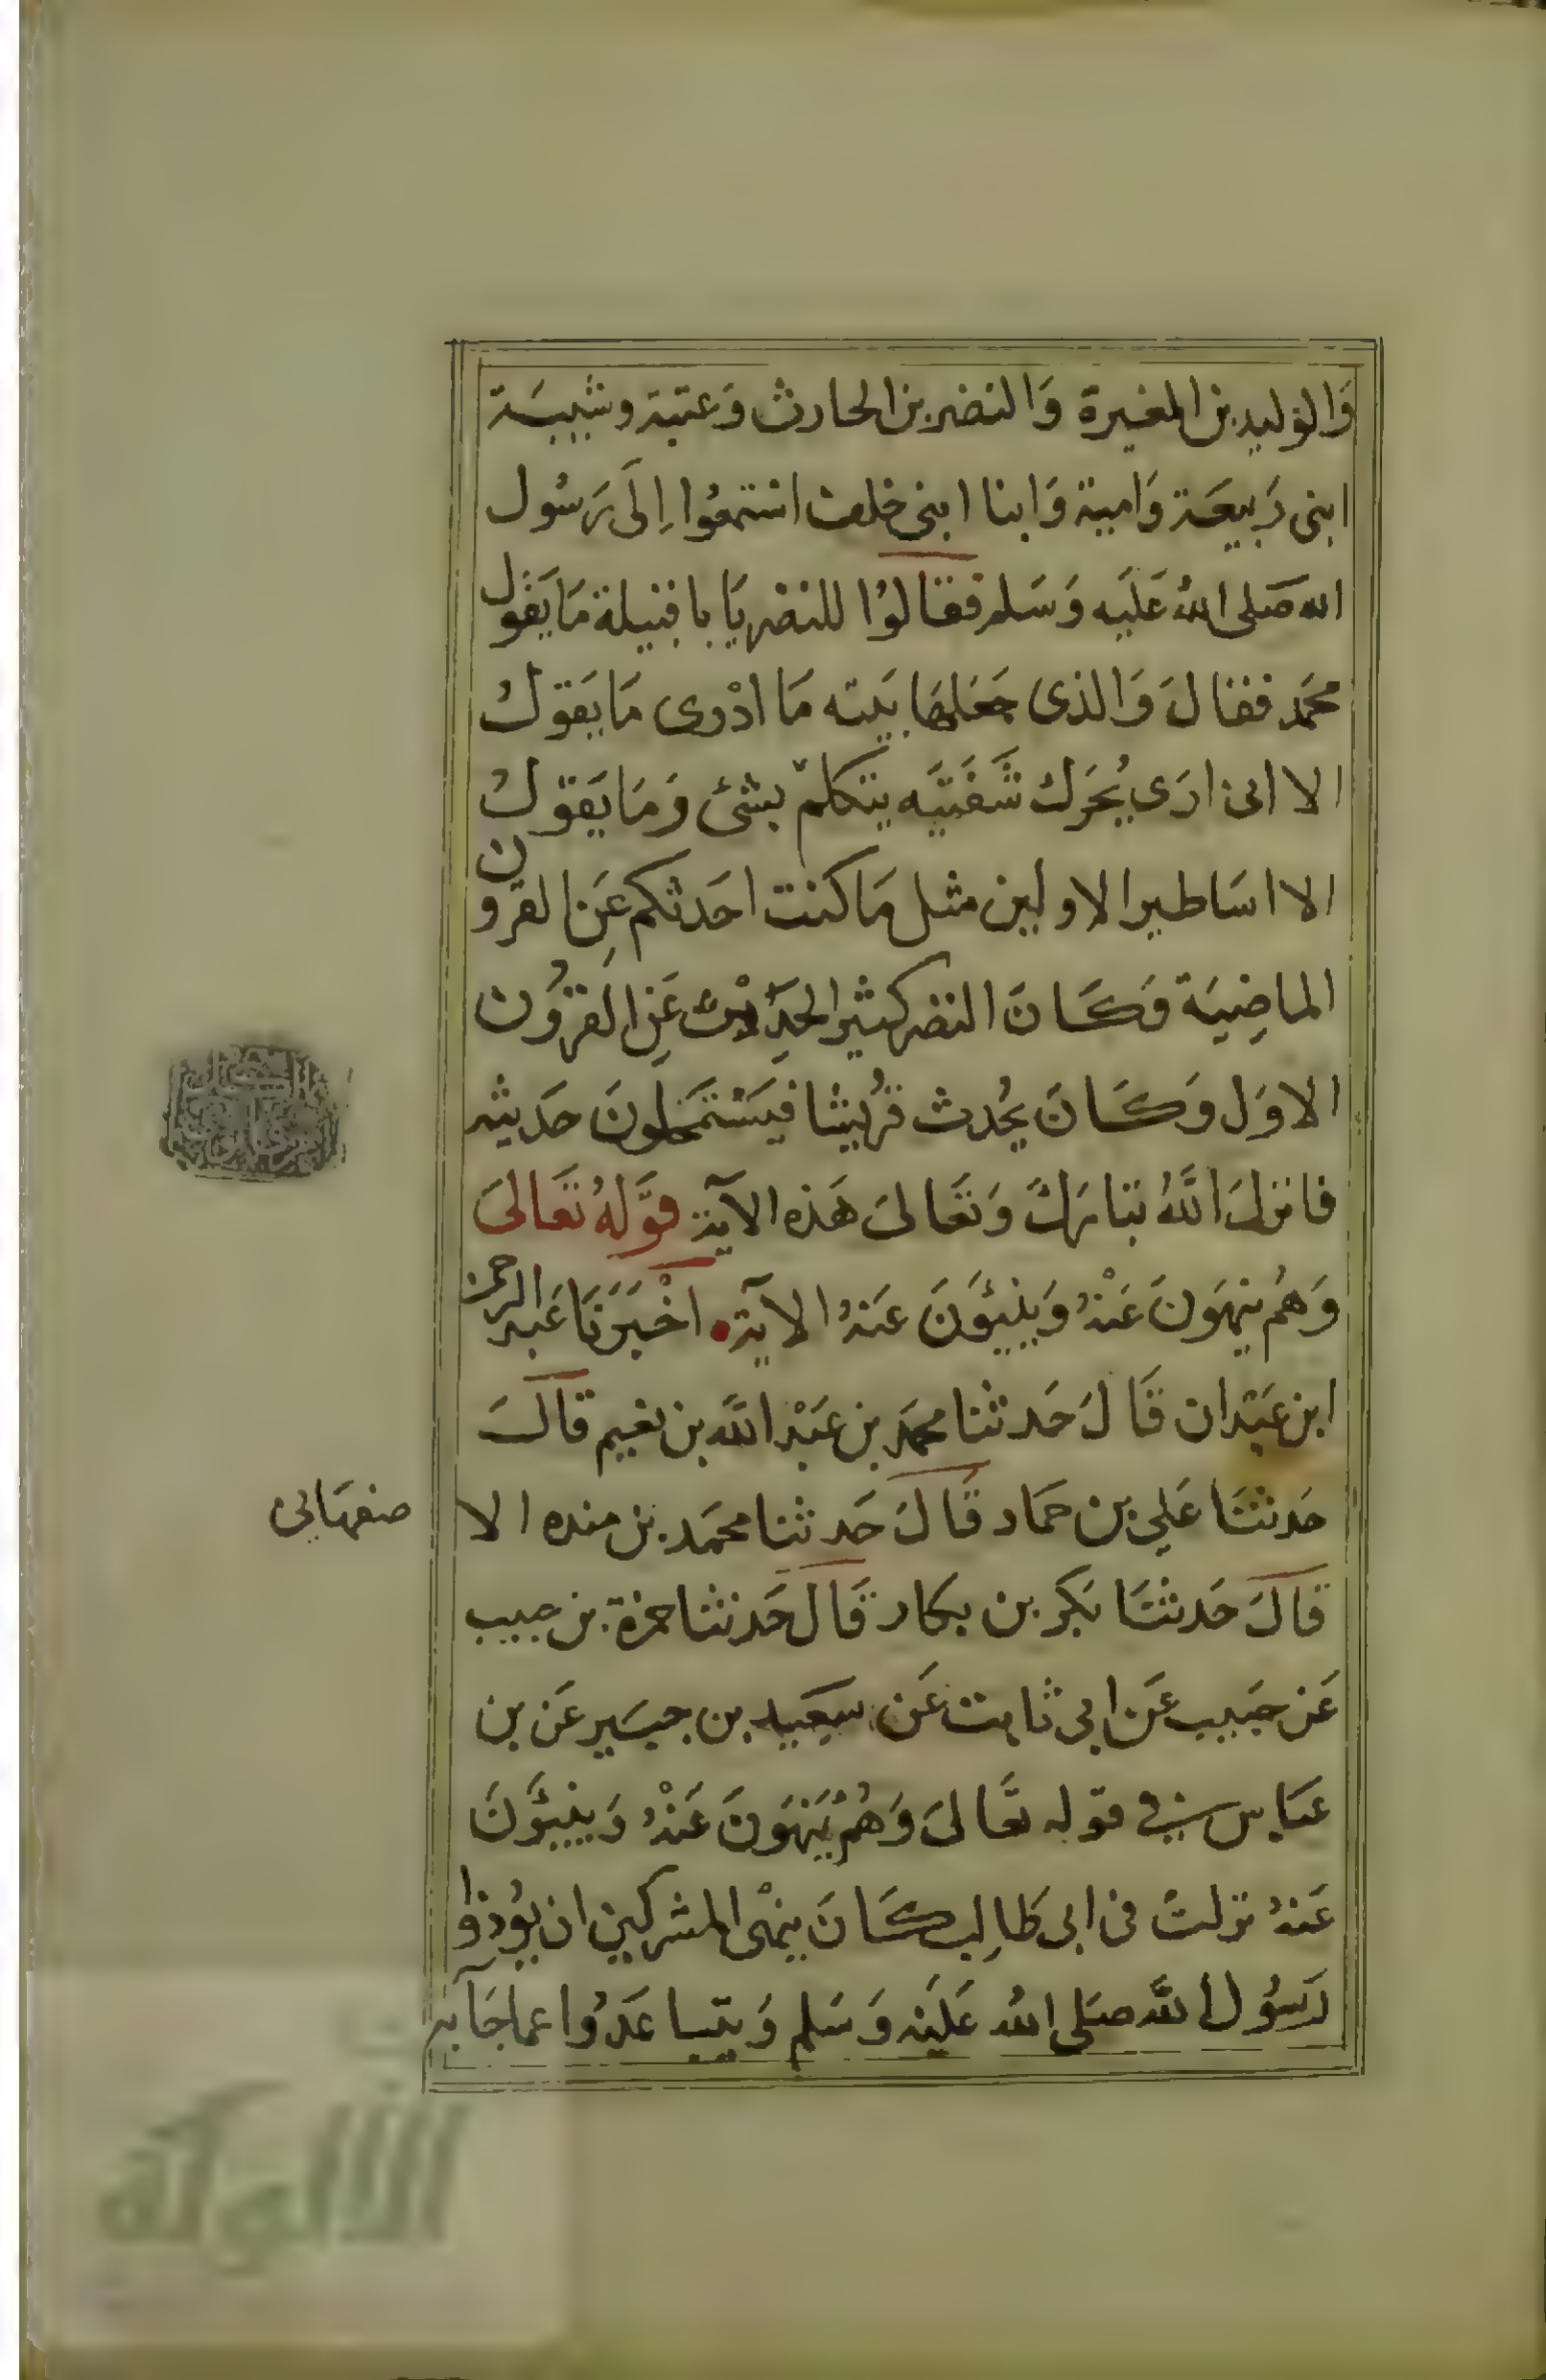 وَالوليد بن المغيرة وَالنضر بن الحارث وَعتبة وشيبَة
ابنى رَبيعَة وَامية وَابنا ابنى خلف استمعُوا اِلَى رَسُول
الله صَلى اللهُ عَلَيه وَسَلم فقالوُا للنضر يَا با قتيلة مَا يَقول
محَمد فقالَ وَالذى جَعَلهَا بَيته مَا ادْرى مَا يَقولُ
الا انى ارَى يُحَرك شَفَتَيَه يتكلم بشئ وَمَا يَقولُ
الا اسَاطير الاولين مثل مَا كنت احَدثكم عَنِ القرون
الماضِيَة وَكَانَ النضر كثير الحَدِيْث عَنِ القرُون
الاوَل وَكَانَ يُحدث قرُيشا فيَسْتمَلحونَ حَديثه
فانزلَ اللَّهُ تبَاركَ وَتعَالىَ هَذه الآية قوَّلهُ تَعَالىَ
وَهُم ينهَونَ عَنْهُ وَينئوَنَ عَنهُ الآية اَخْبَرَنَا عَبد الرحمن
ابن عَبْدان قَالَ حَدثنا محمَد بن عَبْد اللَّه بن نعيم قالَ
حَدثنَا عَلي بن حمَاد قَالَ حَدثنا محمَد بن منده الا
صفهَانى
قالَ حَدثنَا بَكر بن بكار قَالَ حَدثنا حمزة بن حبيب
عَن حبَيب عَن ابى ثابت عَن سَعِيد بن جبَير عَن بن
عبَاس فى قوله تعَالىَ وَهُمْ يَنهَونَ عَنْهُ وَينئوَنَ
عَنهُ نزلتْ فى ابى طَالِب كَانَ ينهْى المشركين ان يؤُذوا
رَسُول اللَّه صَلى اللهُ عَلَيْه وَسَلم وَيتباعَدُوا عما جَآ به
الألوكة